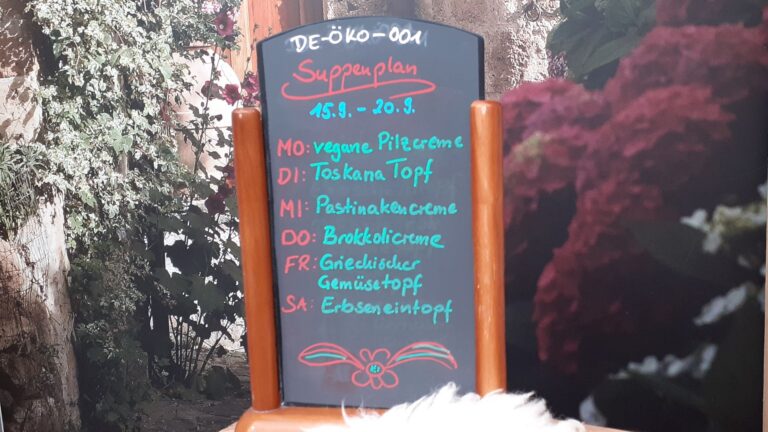 DE-ÖKO-001
Suppenplan
15.9. - 20.9.
MO: vegane Pilzcreme
DI: Toskana Topf
MI: Pastinakencreme
DO: Brokkolicreme
FR: Griechischer
Gemüsetopf
SA: Erbseneintopf